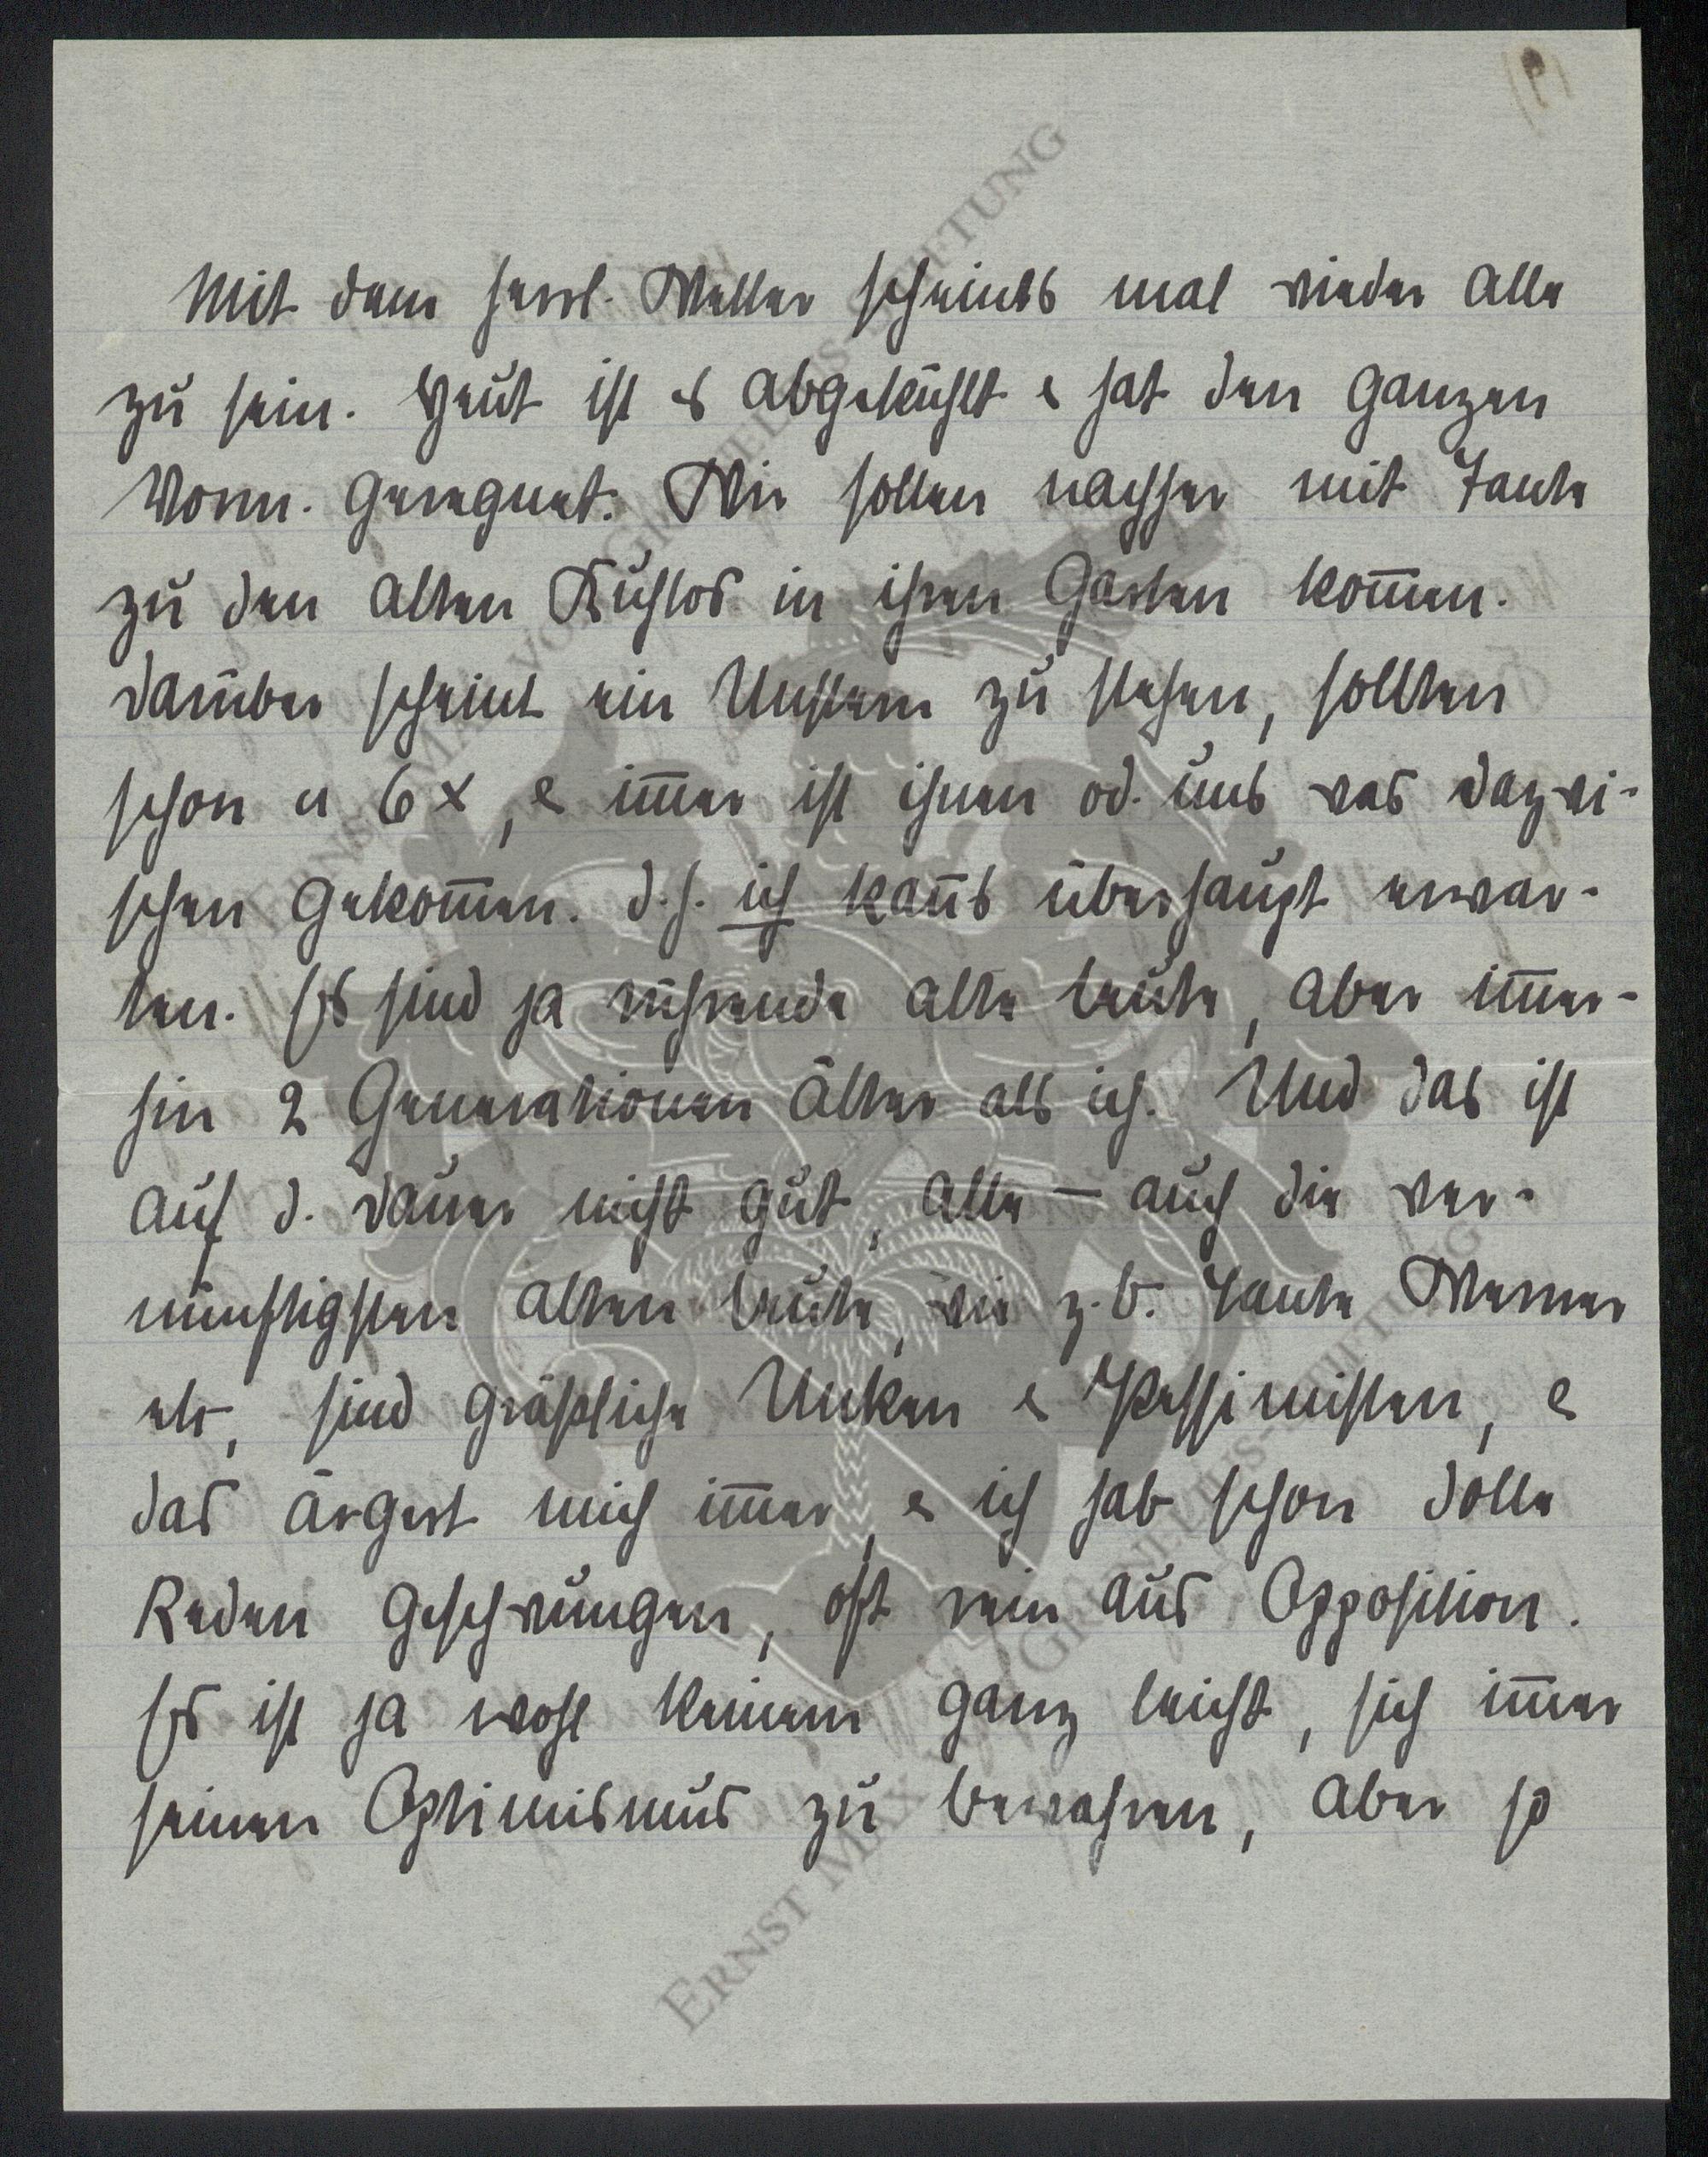 Mit dem herrl. Wetter scheints mal wieder alle
zu sein. Heut ist es abgekühlt & hat den ganzen
Vorm. geregnet. Wir sollen nachher mit Tante
zu den alten in ihren Garten kom̅en.
Darüber scheint ein Unstern zu stehen, sollten
schon 6 x, & im̅er ist ihnen od. uns was dazwi-
schen gekom̅en. D.h. ich kan̅s überhaupt erwar-
ten. Es sind ja rührende alte Leute, aber im̅er-
hin 2 Generationen älter als ich. Und das ist
auf d. Dauer nicht gut, alle – auch die ver-
nünftigsten alten Leute, wie z.B. Tante Werner
etc, sind gräßliche Unken & Pessimisten, &
das ärgert mich im̅er, & ich hab schon dolle
Reden geschwungen, oft rein aus Opposition.
Es ist ja wohl keinem ganz leicht, sich im̅er
seinen Optimismus zu bewahren, aber so
ERNST MAX VON GRUNELIUS-STIFTUNG
ERNST MAX VON GRUNELIUS-STIFTUNG